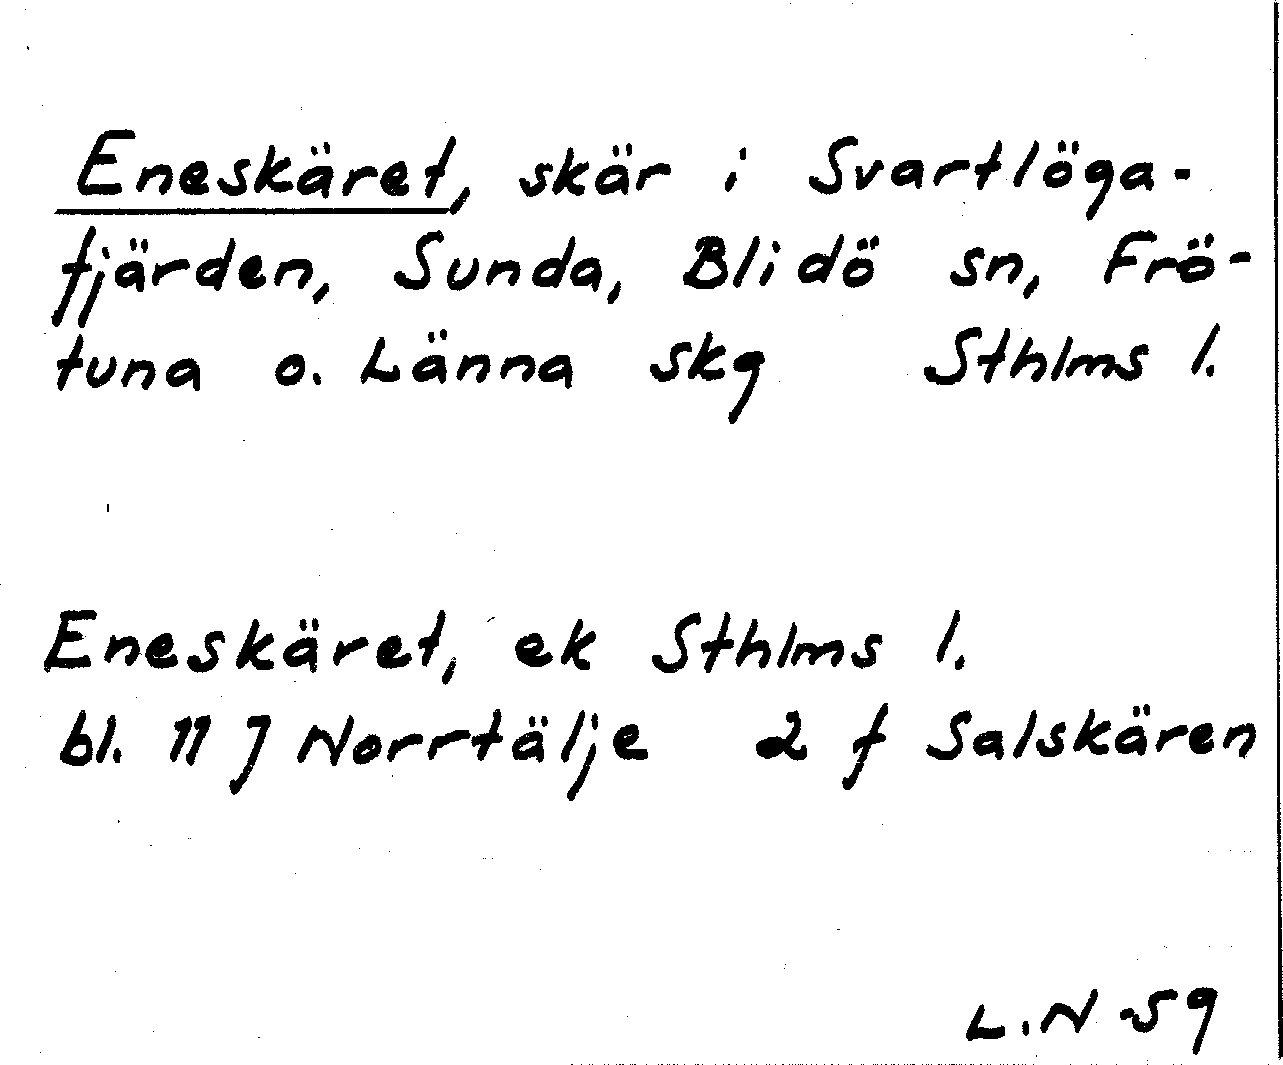 Eneskäret, skär i Svartlöga-
fjärden, Sunda, Blidö sn, Frö-
tuna o. Länna skg Sthlms l.
Eneskäret, ek Sthlms l.
bl. 11 J Norrtälje 2 f Salskären
L.N -59